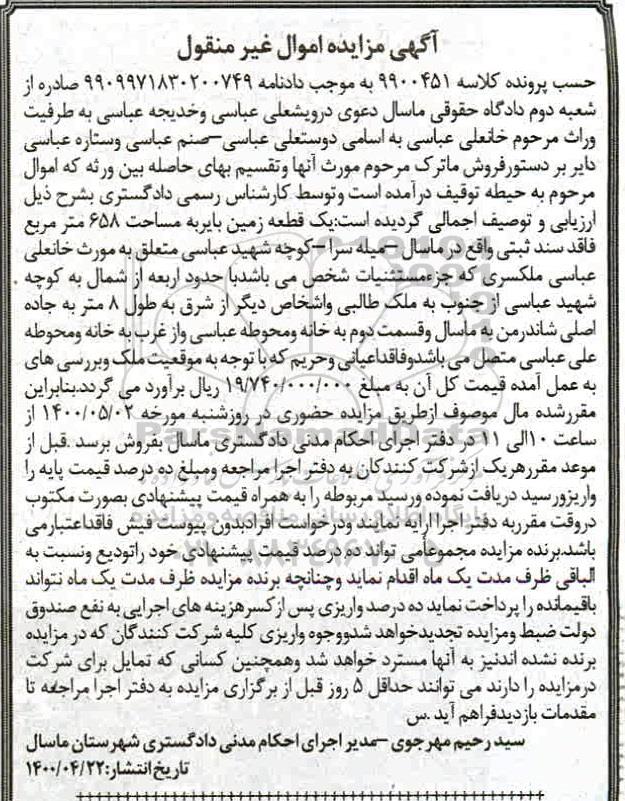 آگهی مزایده اموال غیر منقول
حسب پرونده کلاسه ۹۹۰۰۴۵۱ به موجب دادنامه ۹۹۰۹۹۷۱۸۳۰۲۰۰۷۴۹ صادره از
شعبه دوم دادگاه حقوقی ماسال دعوی درویشعلی عباسی وخدیجه عباسی به طرفیت
وراث مرحوم خانعلی عباسی به اسامی دوستعلی عباسی–صنم عباسی وستاره عباسی
دایر بر دستورفروش ماترک مرحوم مورث آنها وتقسیم بهای حاصله بین ورثه که اموال
مرحوم به حیطه توقیف درآمده است وتوسط کارشناس رسمی دادگستری بشرح ذیل
ارزیابی و توصیف اجمالی گردیده است:یک قطعه زمین بایربه مساحت ۶۵۸ متر مربع
فاقد سند ثبتی واقع در ماسال –میله سرا –کوچه شهید عباسی متعلق به مورث خانعلی
عباسی ملکسری که جزءمستثنیات شخص می باشدبا حدود اربعه از شمال به کوچه
شهید عباسی از جنوب به ملک طالبی واشخاص دیگر از شرق به طول ۸ متر به جاده
اصلی شاندرمن به ماسال وقسمت دوم به خانه ومحوطه عباسی واز غرب به خانه ومحوطه
علی عباسی متصل می باشدوفاقداعیانی وحریم که با توجه به موقعیت ملک وبررسی های
به عمل آمده قیمت کل آن به مبلغ ۱۹/۷۴۰/۰۰۰/۰۰۰ ریال برآورد می گردد.بنابراین
مقررشده مال موصوف ازطریق مزایده حضوری در روزشنبه مورخه ۱۴۰۰/۰۵/۰۲ از
ساعت ۱۰الی ۱۱ در دفتر اجرای احکام مدنی دادگستری ماسال بفروش برسد .قبل از
موعد مقررهریک ازشرکت کنندگان به دفتر اجرا مراجعه ومبلغ ده درصد قیمت پایه را
واریزورسید دریافت نموده ورسید مربوطه را به همراه قیمت پیشنهادی بصورت مکتوب
دروقت مقرربه دفتر اجرا ارایه نمایند ودرخواست افرادبدون پیوست فیش فاقداعتبارمی
باشد.برنده مزایده مجموعاًمی تواند ده درصد قیمت پیشنهادی خود راتودیع ونسبت به
الباقی ظرف مدت یک ماه اقدام نماید وچنانچه برنده مزایده ظرف مدت یک ماه نتواند
باقیمانده را پرداخت نماید ده درصد واریزی پس ازکسرهزینه های اجرایی به نفع صندوق
دولت ضبط ومزایده تجدیدخواهد شدووجوه واریزی کلیه شرکت کنندگان که در مزایده
برنده نشده اندنیز به آنها مسترد خواهد شد وهمچنین کسانی که تمایل برای شرکت
درمزایده را دارند می توانند حداقل ۵ روز قبل از برگزاری مزایده به دفتر اجرا مراجعه تا
مقدمات بازدیدفراهم آید .س
سید رحیم مهرجوی –مدیر اجرای احکام مدنی دادگستری شهرستان ماسال
تاریخ انتشار:۱۴۰۰/۰۴/۲۲
ParsNamadData